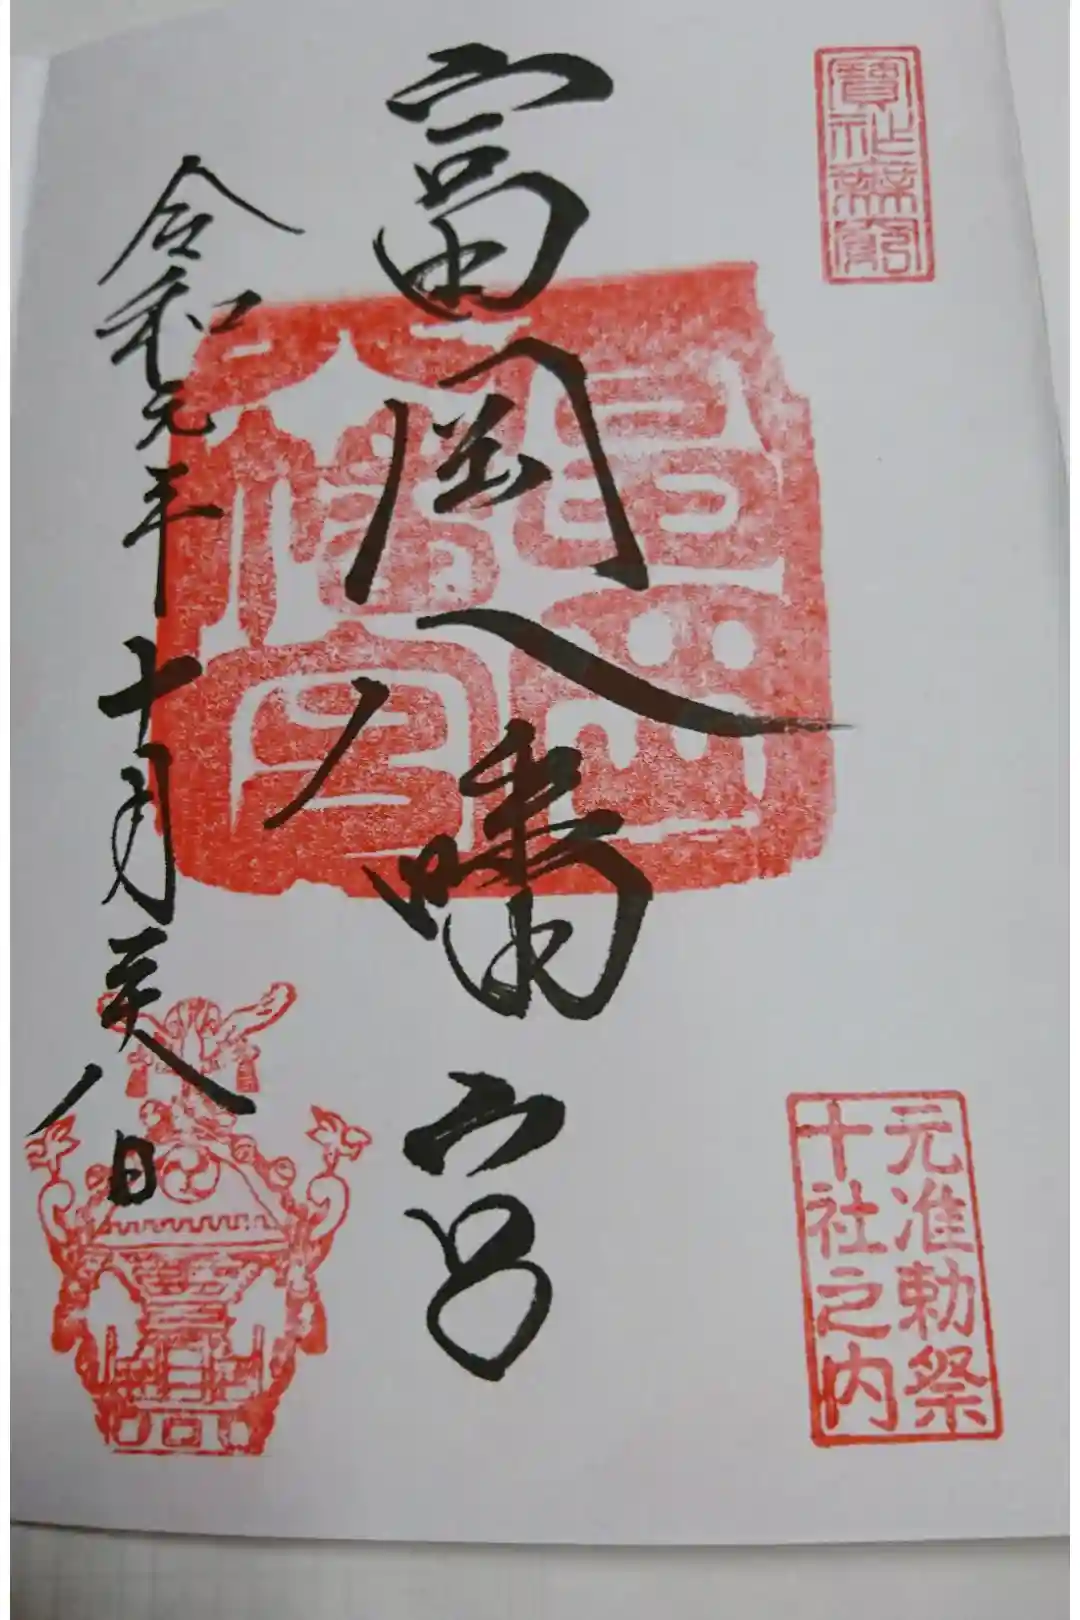 寶祚無窮
元准勅祭
十社之内
富岡八幡宮
富岡
八幡宮
令和元年十月八日